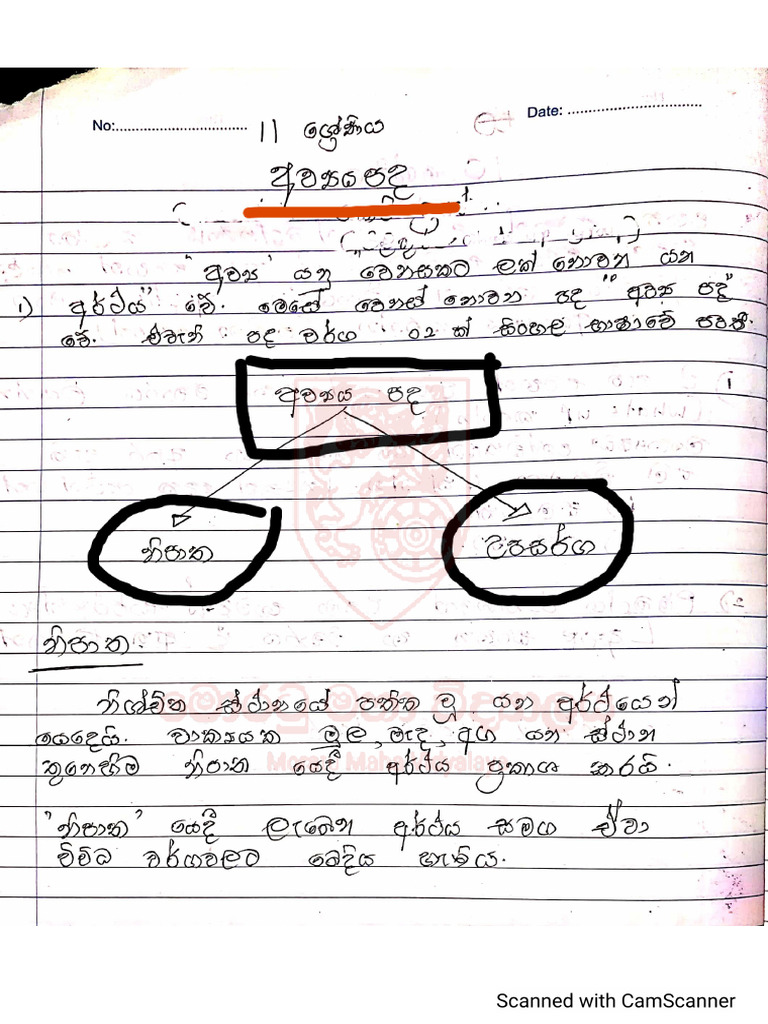 No:.............................. 11 ශ්‍රේණිය Date: ................................
අව්‍යය පද
"අව්‍ය" යනු වෙනසකට ලක් නොවන යන
1) අර්ථය" වේ. මෙසේ වෙනස් නොවන පද "අව්‍ය පද"
වේ. එවැනි පද වර්ග 02 ක් සිංහල භාෂාවේ පවතී.
අව්‍යය පද
නිපාත උපසර්ග
නිපාත.
නිශ්චිත ස්ථානයේ පතිත වූ යන අර්ථයෙන්
යෙදෙයි. වාක්‍යයක මුල, මැද, අග යන ස්ථාන
තුනෙහිම නිපාත යෙදී අර්ථය ප්‍රකාශ කරයි.
"නිපාත" යෙදී ලැබෙන අර්ථය සමග ඒවා
විවිධ වර්ගවලට බෙදිය හැකිය.
Scanned with CamScanner